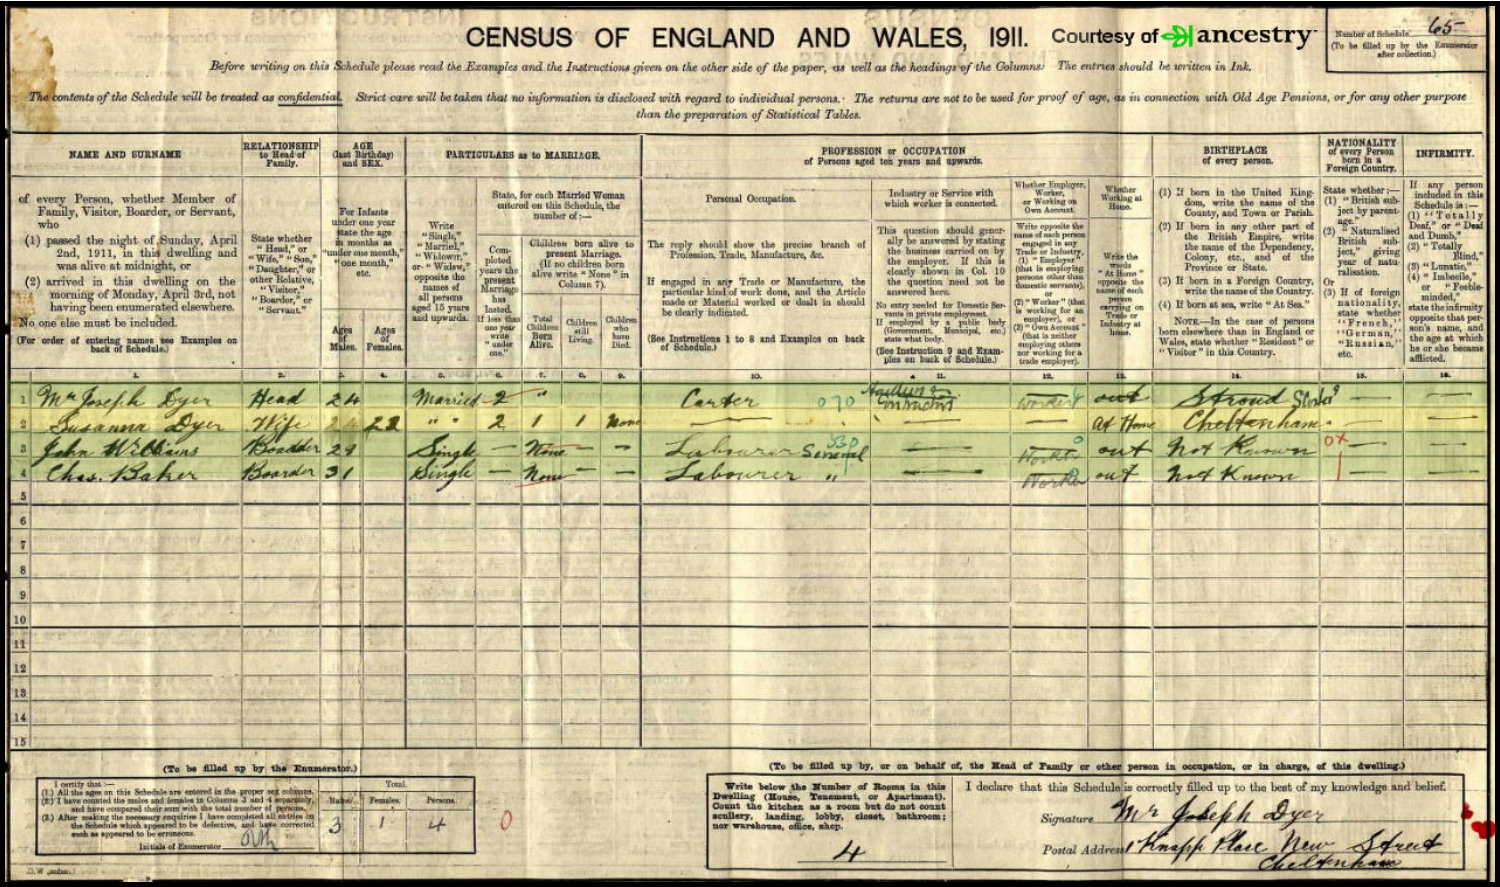 CENSUS OF ENGLAND AND WALES, 1911. Courtesy of ancestry
Number of Schedule 65
(To be filled up by the Enumerator
after collection.)
Before writing on this Schedule please read the Examples and the Instructions given on the other side of the paper, as well as the headings of the Columns. The entries should be written in Ink.
The contents of the Schedule will be treated as confidential. Strict care will be taken that no information is disclosed with regard to individual persons. The returns are not to be used for proof of age, as in connection with Old Age Pensions, or for any other purpose
than the preparation of Statistical Tables.
NAME AND SURNAME
of every Person, whether Member of
Family, Visitor, Boarder, or Servant,
who
(1) passed the night of Sunday, April
2nd, 1911, in this dwelling and
was alive at midnight, or
(2) arrived in this dwelling on the
morning of Monday, April 3rd, not
having been enumerated elsewhere.
No one else must be included.
(For order of entering names see Examples on
back of Schedule.)
RELATIONSHIP
to Head of
Family.
State whether
"Head," or
"Wife," "Son,"
"Daughter," or
other Relative,
"Visitor,"
"Boarder," or
"Servant."
AGE
(last Birthday)
and SEX.
For Infants
under one year
state the age
in months as
"under one month,"
"one month,"
etc.
Ages
of
Males.
Ages
of
Females.
PARTICULARS as to MARRIAGE.
Write
"Single,"
"Married,"
"Widower,"
or "Widow,"
opposite the
names of
all persons
aged 15 years
and upwards.
State, for each Married Woman
entered on this Schedule, the
number of:—
Completed
years the
present
Marriage
has
lasted.
If less than
one year
write
"under
one."
Children born alive to
present Marriage.
(If no children born
alive write "None" in
Column 7).
Total
Children
Born
Alive.
Children
still
Living.
Children
who
have
Died.
PROFESSION or OCCUPATION
of Persons aged ten years and upwards.
Personal Occupation.
The reply should show the precise branch of
Profession, Trade, Manufacture, &c.
If engaged in any Trade or Manufacture, the
particular kind of work done, and the Article
made or Material worked or dealt in should
be clearly indicated.
(See Instructions 1 to 8 and Examples on back
of Schedule.)
Industry or Service with
which worker is connected.
This question should gener-
ally be answered by stating
the business carried on by
the employer. If this is
clearly shown in Col. 10
the question need not be
answered here.
No entry needed for Domestic Ser-
vants in private employment.
If employed by a public body
(Government, Municipal, etc.)
state what body.
(See Instruction 9 and Exam-
ples on back of Schedule.)
Whether Employer,
Worker,
or Working on
Own Account.
Write opposite the
name of each person
engaged in any
Trade or Industry.
(1) "Employer"
(that is employing
persons other than
domestic servants),
or
(2) "Worker" (that
is working for an
employer), or
(3) "Own Account"
(that is neither
employing others
nor working for a
trade employer).
Whether
Working at
Home.
Write the
words
"At Home"
opposite the
name of each
person
carrying on
Trade or
Industry at
home.
BIRTHPLACE
of every person.
(1) If born in the United King-
dom, write the name of the
County, and Town or Parish.
(2) If born in any other part of
the British Empire, write
the name of the Dependency,
Colony, etc., and of the
Province or State.
(3) If born in a Foreign Country,
write the name of the Country.
(4) If born at sea, write "At Sea."
NOTE.—In the case of persons
born elsewhere than in England or
Wales, state whether "Resident" or
"Visitor" in this Country.
NATIONALITY
of every Person
born in a
Foreign Country.
State whether:—
(1) "British sub-
ject by parent-
age."
(2) "Naturalised
British sub-
ject," giving
year of natu-
ralisation.
Or
(3) If of foreign
nationality,
state whether
"French,"
"German,"
"Russian,"
etc.
INFIRMITY.
If any person
included in this
Schedule is:—
(1) "Totally
Deaf," or "Deaf
and Dumb,"
(2) "Totally
Blind,"
(3) "Lunatic,"
(4) "Imbecile,"
or "Feeble-
minded,"
state the infirmity
opposite that per-
son's name, and
the age at which
he or she became
afflicted.
1. 2. 3. 4. 5. 6. 7. 8. 9. 10. 11. 12. 13. 14. 15. 16.
1 Mr Joseph Dyer Head 24 Married 2 " Carter 070 Contractors Worker out Stroud
2 Susanna Dyer Wife 22 " " 2 1 1 None — — — At Home Cheltenham —
3 John Williams Boarder 29 Single — None — — Labourer General 530 — Worker out Not Known — —
4 Chas. Baker Boarder 31 Single — None — — Labourer " — Worker out Not Known — —
5
6
7
8
9
10
11
12
13
14
15
(To be filled up by the Enumerator.)
I certify that:—
(1.) All the ages on this Schedule are entered in the proper sex columns.
(2.) I have counted the males and females in Columns 3 and 4 separately,
and have compared their sum with the total number of persons.
(3.) After making the necessary enquiries I have completed all entries on
the Schedule which appeared to be defective, and have corrected
such as appeared to be erroneous.
Initials of Enumerator
Total.
Males. Females. Persons.
3 1 4 0
(To be filled up by, or on behalf of, the Head of Family or other person in occupation, or in charge, of this dwelling.)
Write below the Number of Rooms in this
Dwelling (House, Tenement, or Apartment).
Count the kitchen as a room but do not count
scullery, landing, lobby, closet, bathroom;
nor warehouse, office, shop.
4
I declare that this Schedule is correctly filled up to the best of my knowledge and belief.
Signature Mr Joseph Dyer
Postal Address 1 Knapp Place New Street
Cheltenham